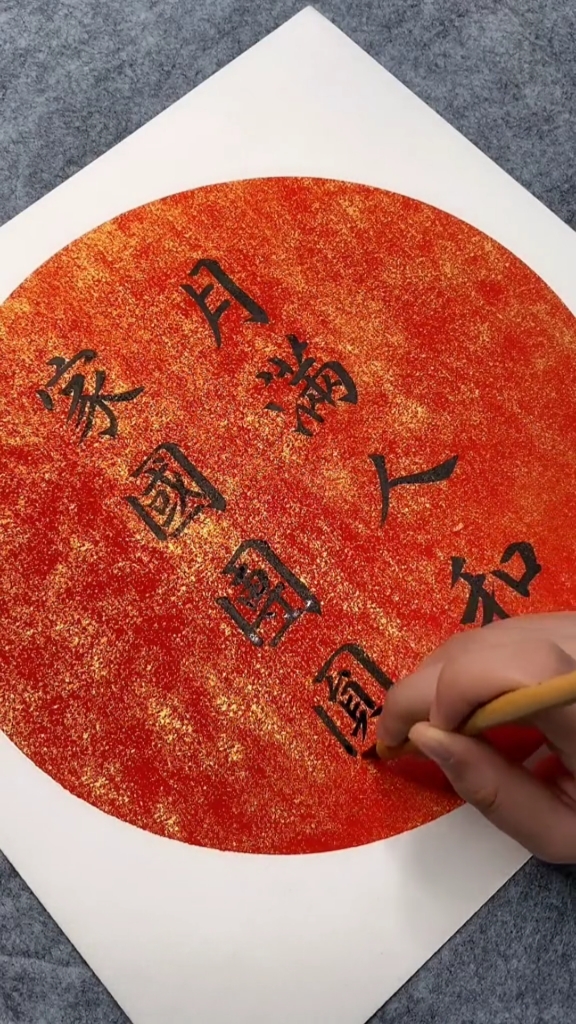 月滿人和
家國團圓